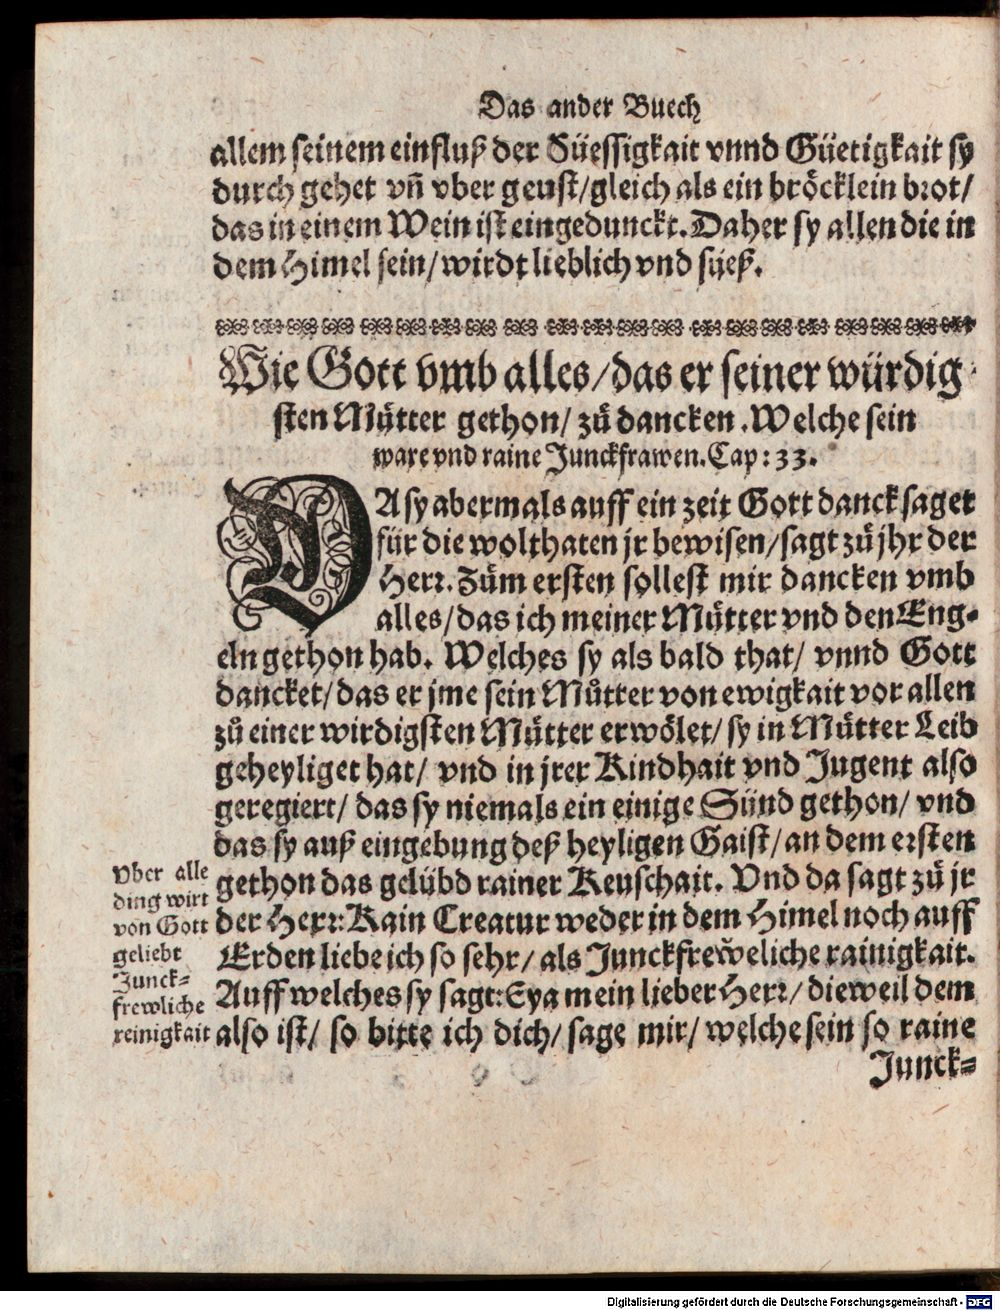 Das ander Buech
allem seinem einfluß der Süessigkait vnnd Güetigkait sy
durch gehet vñ vber geust/gleich als ein bröcklein brot/
das in einem Wein ist eingedunckt. Daher sy allen die in
dem Himel sein/ wirdt lieblich vnd süeß.
Wie Gott vmb alles/das er seiner würdig-
sten Můtter gethon/ zů dancken. Welche sein
ware vnd raine Junckfrawen. Cap: 33.
DA sy abermals auff ein zeit Gott danck saget
für die wolthaten jr bewisen/sagt zů jhr der
Herr. Zům ersten sollest mir dancken vmb
alles/das ich meiner Můtter vnd den Eng-
eln gethon hab. Welches sy als bald that/ vnnd Gott
dancket/das er jme sein Můtter von ewigkait vor allen
zů einer wirdigsten Můtter erwölet/ sy in Můtter Leib
geheyliget hat/ vnd in jrer Kindhait vnd Jugent also
geregiert/ das sy niemals ein einige Sünd gethon/ vnd
das sy auß eingebung deß heyligen Gaist/an dem ersten
gethon das gelübd rainer Keuschait. Vnd da sagt zů jr
der Herr: Kain Creatur weder in dem Himel noch auff
Erden liebe ich so sehr/ als Junckfreẅeliche rainigkait.
Auff welches sy sagt: Eya mein lieber Herr/ dieweil dem
also ist/ so bitte ich dich/ sage mir/ welche sein so raine
Junck-
vber alle
ding wirt
von Gott
geliebt
Junck-
frewliche
reinigkait
Digitalisierung gefördert durch die Deutsche Forschungsgemeinschaft - DFG